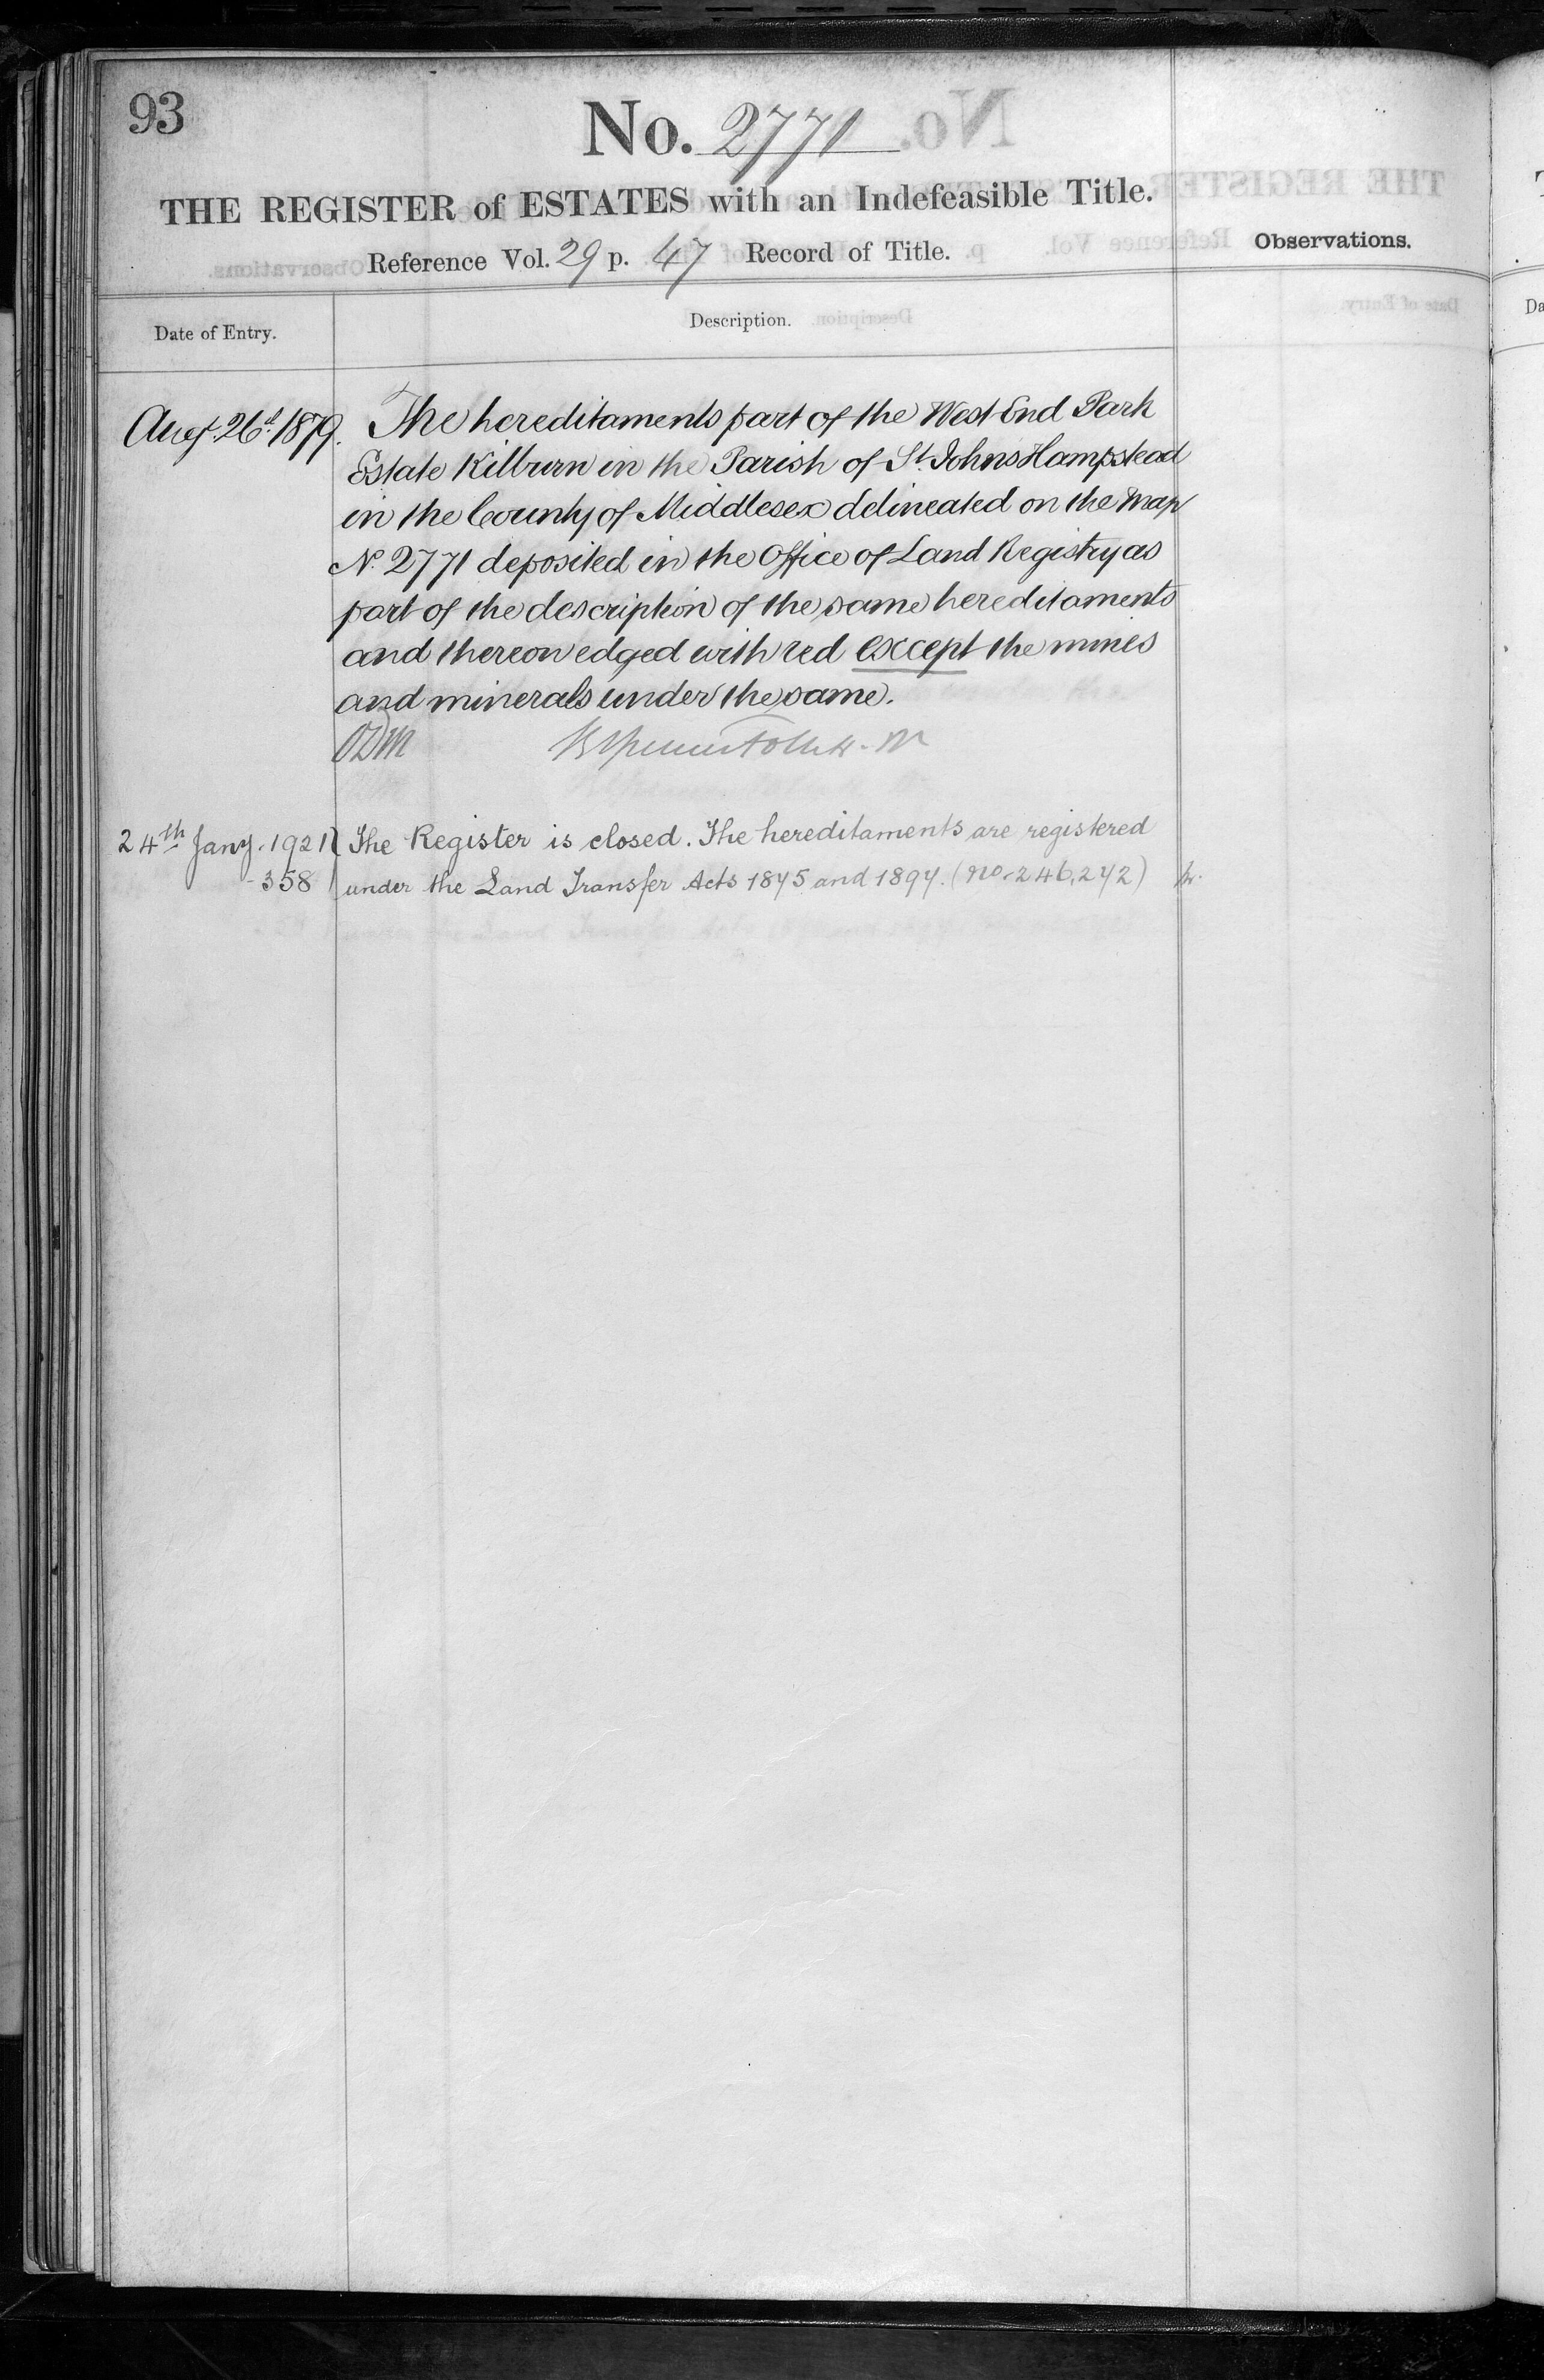 93
No. 2771
THE REGISTER of ESTATES with an Indefeasible Title.
Reference Vol. 29 p. 47 Record of Title.
Observations.
Date of Entry.
Description.
Aug. 26th 1879. The hereditaments part of the West End Park
Estate Kilburn in the Parish of St. Johns Hampstead
in the County of Middlesex delineated on the Map
No. 2771 deposited in the Office of Land Registry as
part of the description of the same hereditaments
and thereon edged with red except the mines
and minerals under the same.
24th Jany. 1921 The Register is closed. The hereditaments are registered
358 under the Land Transfer Acts 1875 and 1897. (No. 246,272)